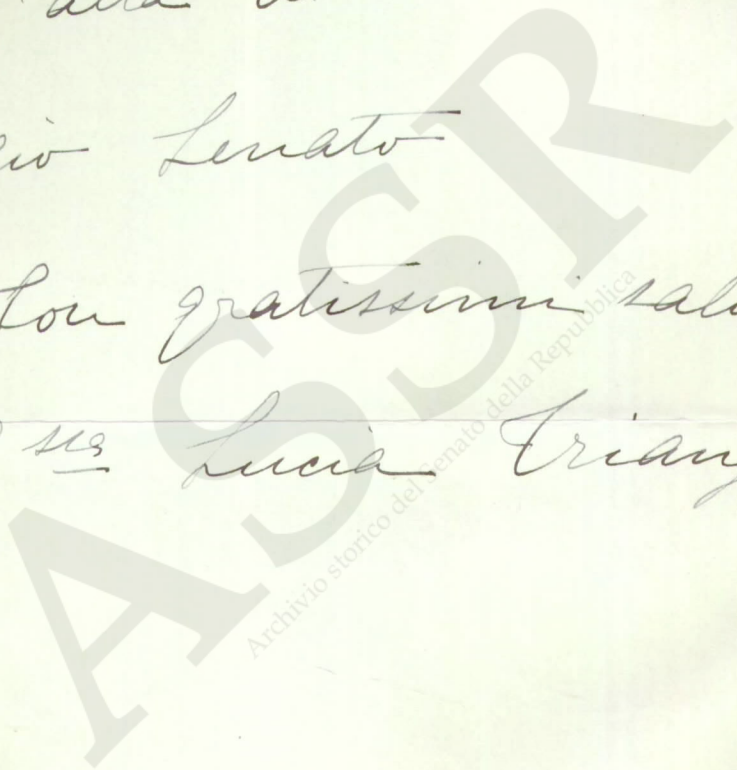 alla
io Senato
Con gratissimi salu
ssa Lucia Triang
ASSR
Archivio storico del Senato della Repubblica